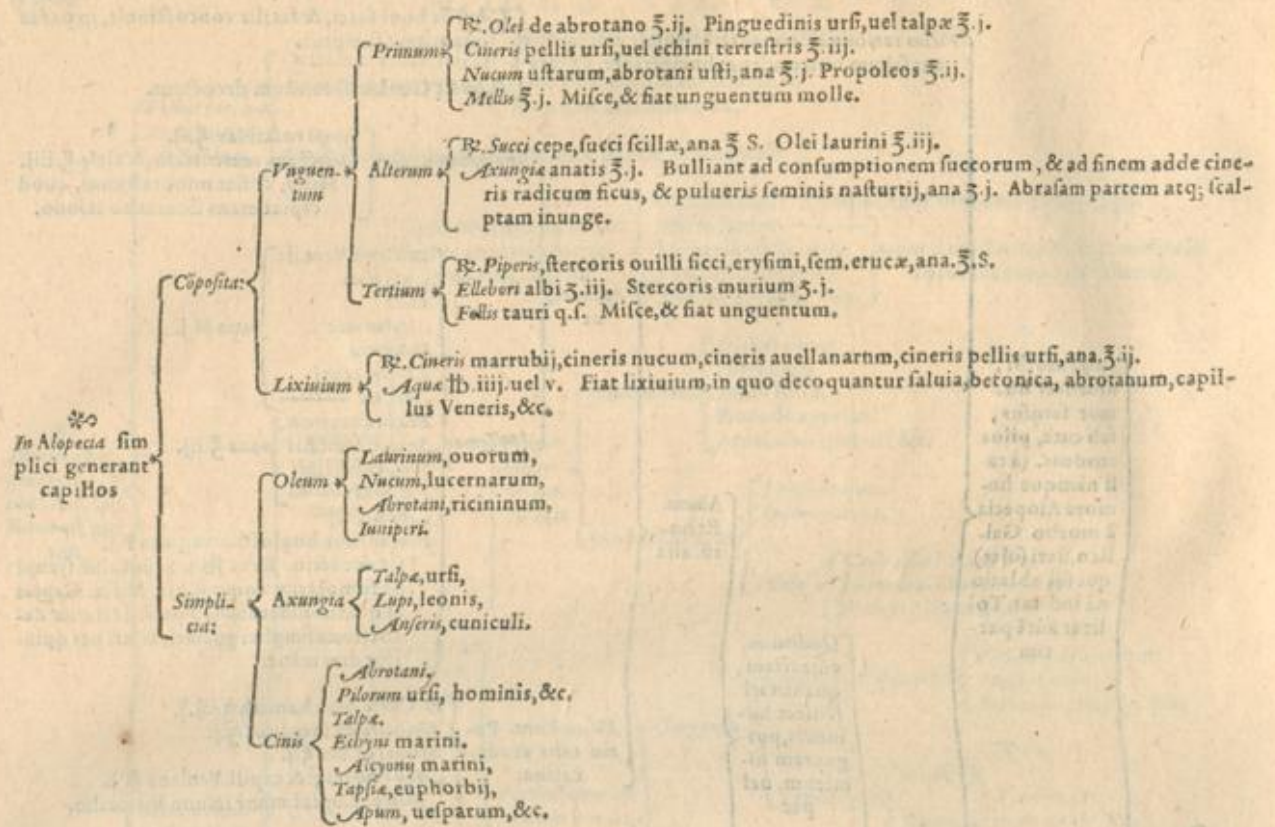 ℞. Olei de abrotano ℥.ij. Pinguedinis ursi, uel talpæ ℥.j.
Primum
Cineris pellis ursi, uel echini terrestris ℥.iij.
Nucum ustarum, abrotani usti, ana ℥.j. Propoleos ℥.ij.
Mellis ℥.j. Misce, & fiat unguentum molle.
℞. Succi cepe, succi scillæ, ana ℥ S. Olei laurini ℥.iij.
Vnguen-
tum
Alterum
Axungiæ anatis ℥.j. Bulliant ad consumptionem succorum, & ad finem adde cine-
ris radicum ficus, & pulueris seminis nasturtij, ana ʒ.j. Abrasam partem atq; scal-
ptam inunge.
Cōposita:
Tertium
℞. Piperis, stercoris ouilli sicci, erysimi, sem. erucæ, ana. ℥.S.
Ellebori albi ʒ.iij. Stercoris murium ʒ.j.
Fellis tauri q.s. Misce, & fiat unguentum.
Lixiuium
℞. Cineris marrubij, cineris nucum, cineris auellanarum, cineris pellis ursi, ana. ℥.ij.
Aquæ ℔.iiij. uel v. Fiat lixiuium, in quo decoquantur saluia, betonica, abrotanum, capil-
lus Veneris, &c.
In Alopecia sim
plici generant
capillos
Oleum
Laurinum, ouorum,
Nucum, lucernarum,
Abrotani, ricininum,
Iuniperi.
Simpli-
cia:
Axungia
Talpæ, ursi,
Lupi, leonis,
Anseris, cuniculi.
Cinis
Abrotani,
Pilorum ursi, hominis, &c.
Talpæ.
Echyni marini.
Alcyonij marini,
Tapsiæ, euphorbij,
Apum, uesparum, &c.